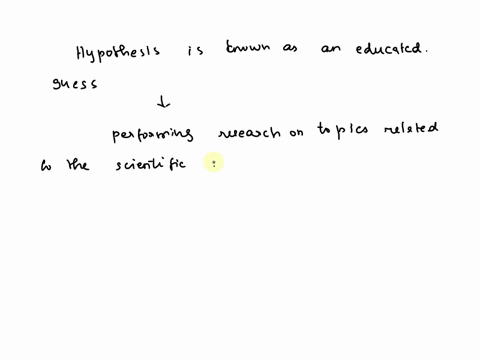 Hypothesis is known as an educated.
guess
↓
performing research on topics related
to the scientific :